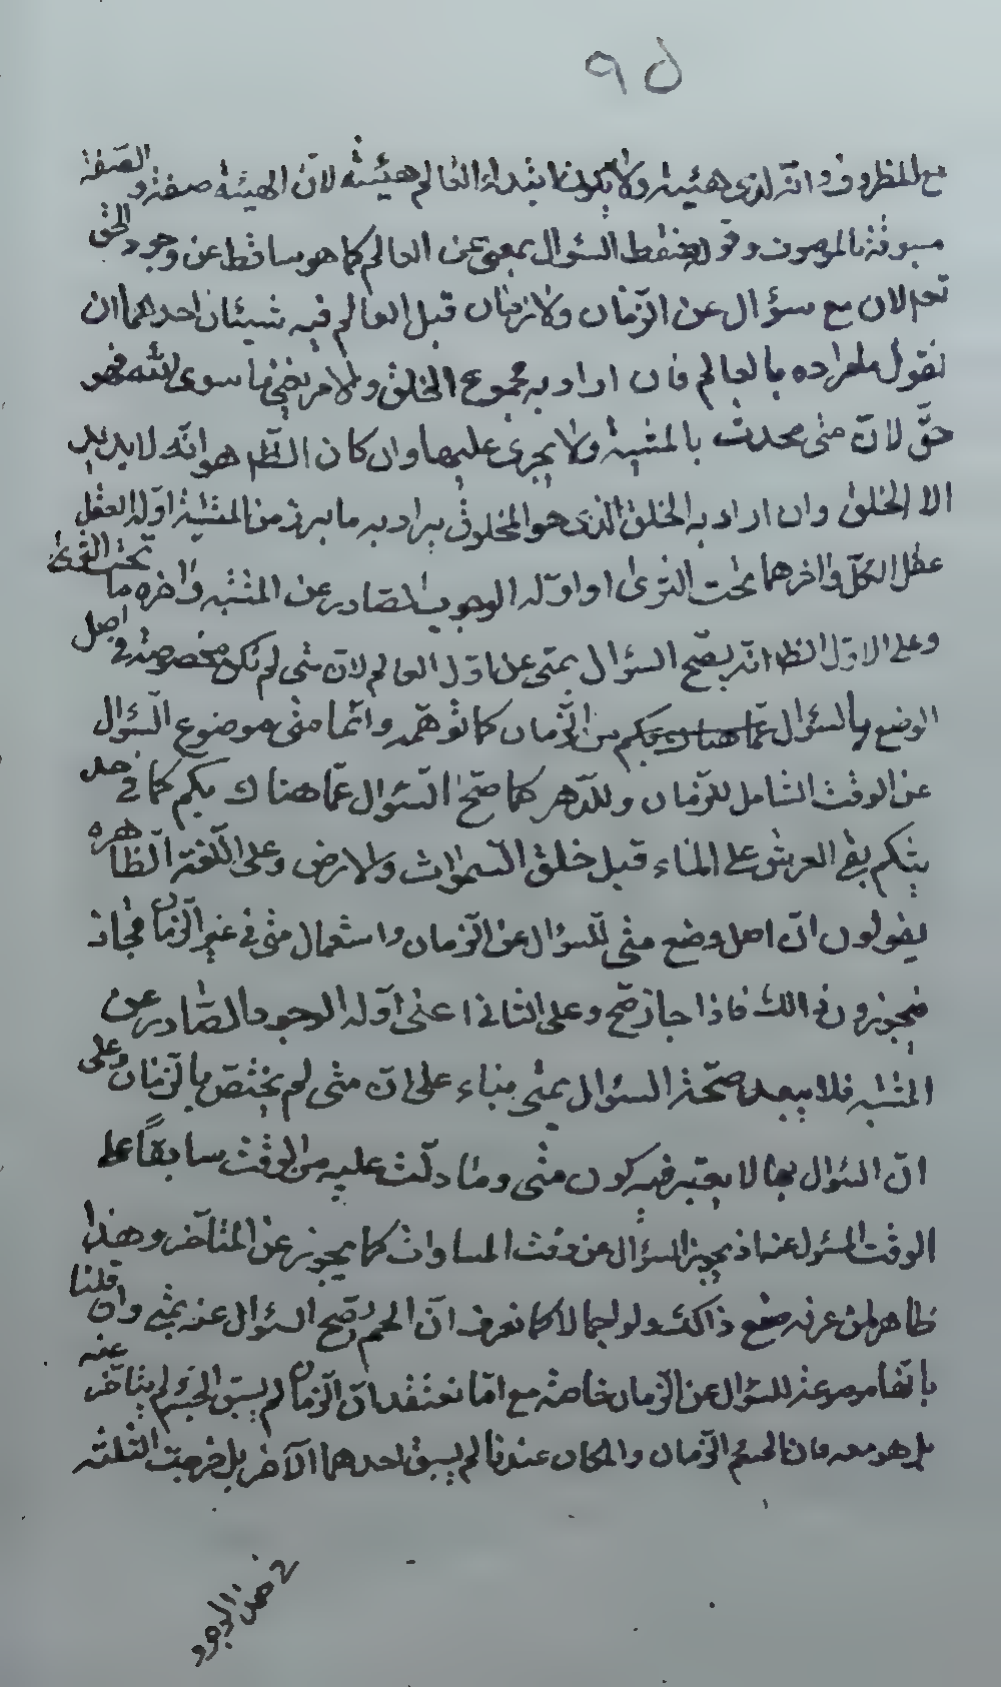 ٩٥
مع المظروف وانه لذى هيئة ولا يكون ابتداء العالم هيئة لان الهيئة صفة والصفة
مسبوقة بالموصوف وقوله فيسقط السؤال بمتى عن العالم كما هو ساقط عن وجود الحق
تعم لان مع سؤال عن الزمان ولا زمان قبل العالم فيه شيئان احدهما ان
نقول ما مراده بالعالم فان اراد به مجموع الخلق والامر يعنى ما سوى الله فهو
حق لان متى محدث بالمشية ولا يجرى عليها وان كان الظم هو انه لا يريد
الا الخلق وان اراد به الخلق الذى هو المخلوق يراد به ما برز من المشية اوله العقل
عقل الكل واخرهما تحت الثرى او اوله الوجود الصادر عن المشية واخره ما تحت الثرى
وعلى الاول الظا انه يصح السؤال بمتى عن اول العالم لان متى لم تكن مخصوصة فى اصل
الوضع بالسؤال عما هناك بكم من الزمان كما توهمه وانما متى موضوع السؤال
عن الوقت الشامل للزمان وللدهر كما صح السؤال عما هناك بكم كما فى حد
بكم بقى العرش على الماء قبل خلق السموات والارض وعلى اللغة الظاهره
يقولون ان اصل وضع متى للسؤال عن الزمان واستعمال متى فى غير الزمان مجاز
فيجوزون ذالك فاذا جاز صح وعلى الثانى اعنى اوله الوجود الصادر عن
المشية فلا يبعد صحة السؤال بمتى بناء على ان متى لم يختص بالزمان وعلى
ان السؤال بها لا يعتبر فيه كون متى وما دلت عليه من الوقت سابقا على
الوقت المسئول عنه اذ يجوز السؤال عن وقت المساوات كما يجوز عن المتاخر وهذا
ظاهر لمن عرف صنع ذاك ولو اجمالا كما نعرف ان الجسم يصح السؤال عنه بمتى وان قلنا
بانها موضوعة للسؤال عن الزمان خاصة مع انا نعتقد ان الزمان لم يسبق الجسم ولم يتاخر عنه
بل هو معه فان الجسم الزمان والمكان عندنا لم يسبق احدهما الآخر بل خرجت الثلثه
فى ضمن الوجود